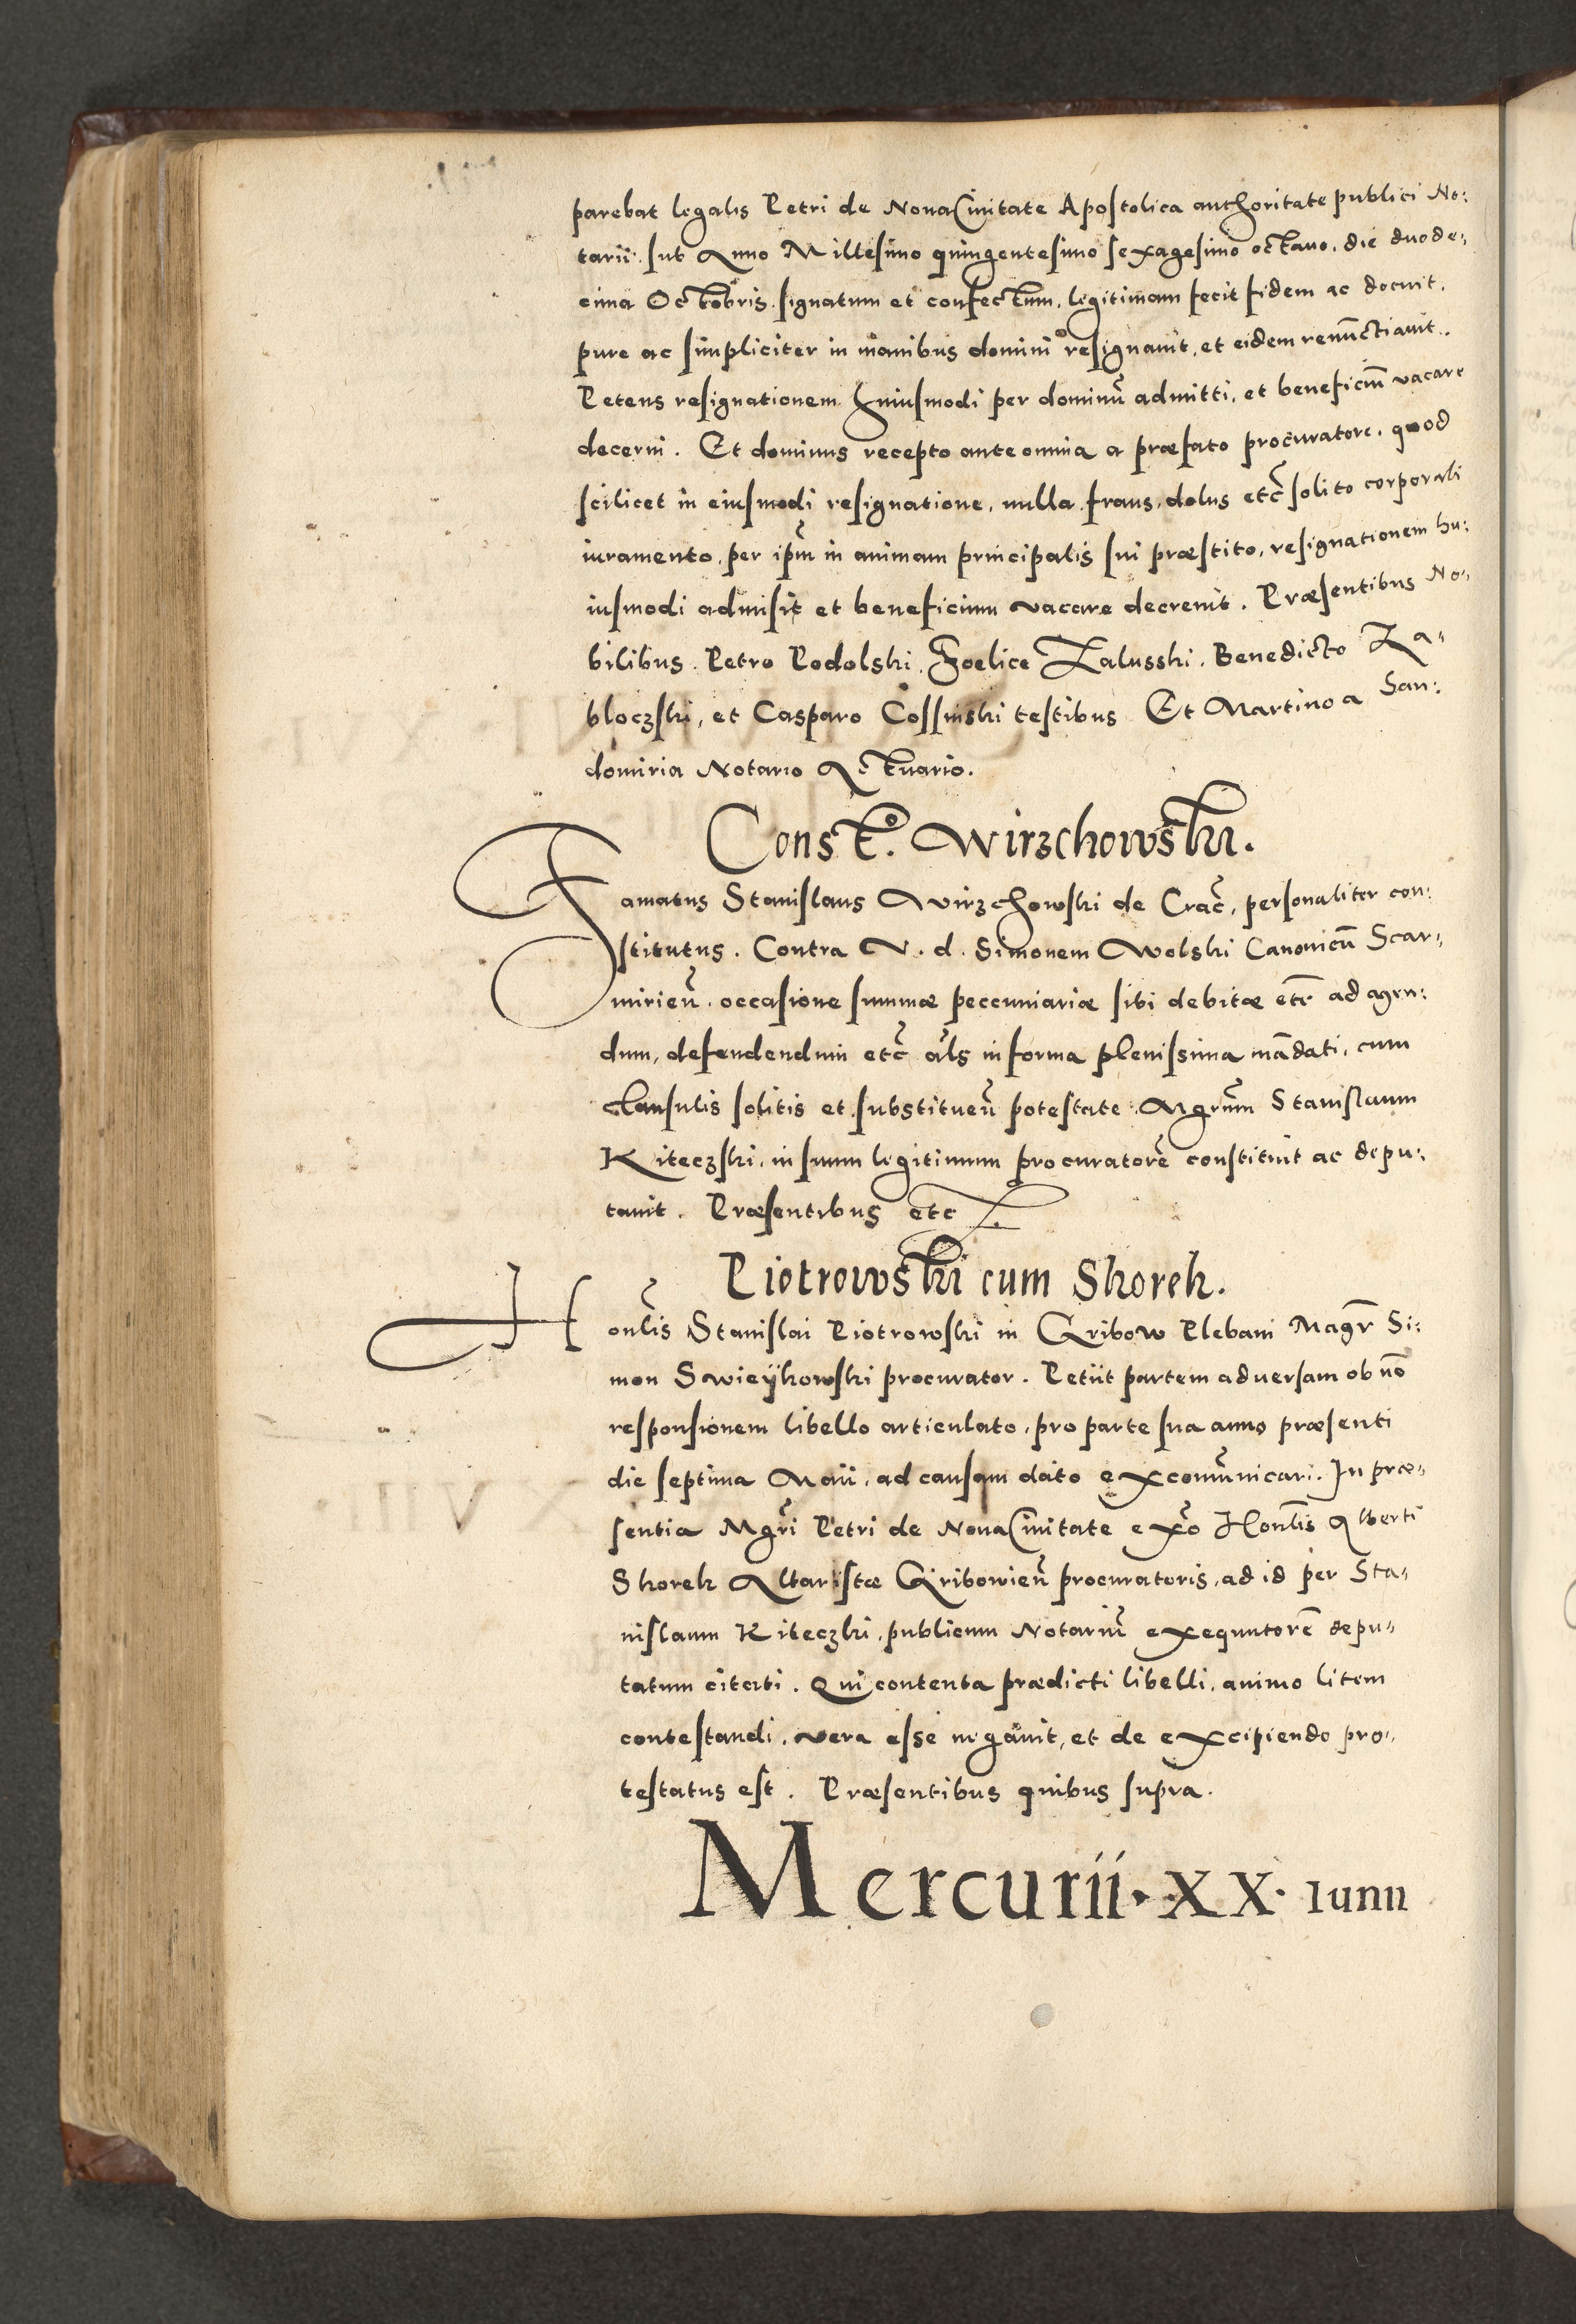 parebat legalis Petri de Noua Ciuitate Apostolica authoritate publici No:
tarii. sub Anno Millesimo quingentesimo sexagesimo octauo. die duode:
cima Octobris. signatum et confectum. legitimam fecit fidem ac docuit.
pure ac simpliciter in manibus domini resignauit, et eidem renūnctiauit.
Petens resignationem huiusmodi per dominū admitti, et beneficiū vacare
decerni. Et dominus recepto ante omnia a præfato procuratore. quod
scilicet in eiusmodi resignatione, nulla fraus, dolus etc̃ solito corporali
iuramento, per ip̃m in animam principalis sui præstito, resignationem hu:
iusmodi admisit et beneficium vacare decreuit. Præsentibus No:
bilibus. Petro Podolski. Foelice Zalusski. Benedicto Za:
bloczski, et Casparo Cossinski testibus Et Martino a San:
domiria Notario Actuario.
Const.o Wirzchowski.
Famatus Stanislaus Wirzchowski de Crac̃, personaliter con:
stitutus. Contra V. d. Simonem Wolski Canonicū Scar:
mirieñ. occasione summæ peccuniariæ sibi debitæ etc̃ ad agen:
dum, defendendum etc̃ al̃s in forma plenissima mādati, cum
clausulis solitis et substitueñ potestate. Mgr̃um Stanislaum
Kiteczski. in suum legitimum procuratorē constituit ac depu:
tauit. Præsentibus etc
Piotrowski cum Skorek.
Honl̃is Stanislai Piotrowski in Gribow Plebani Magr̃ Si:
mon Swieÿkowski procurator. Petiit partem aduersam ob nō
responsionem libello articulato, pro parte sua anno præsenti
die septima Maii, ad causam dato excomūnicari. In præ:
sentia Mgr̃i Petri de Noua Ciuitate ex̃o Honl̃is Alberti
Skorek Altaristæ Gribowieñ procuratoris, ad id per Sta:
nislaum Kiteczki, publicum Notariū exequutorē depu:
tatum citati. Qui contenta prædicti libelli, animo litem
contestandi, vera esse negauit, et de excipiendo pro:
testatus est. Præsentibus quibus supra.
Mercurii · XX · Iunii